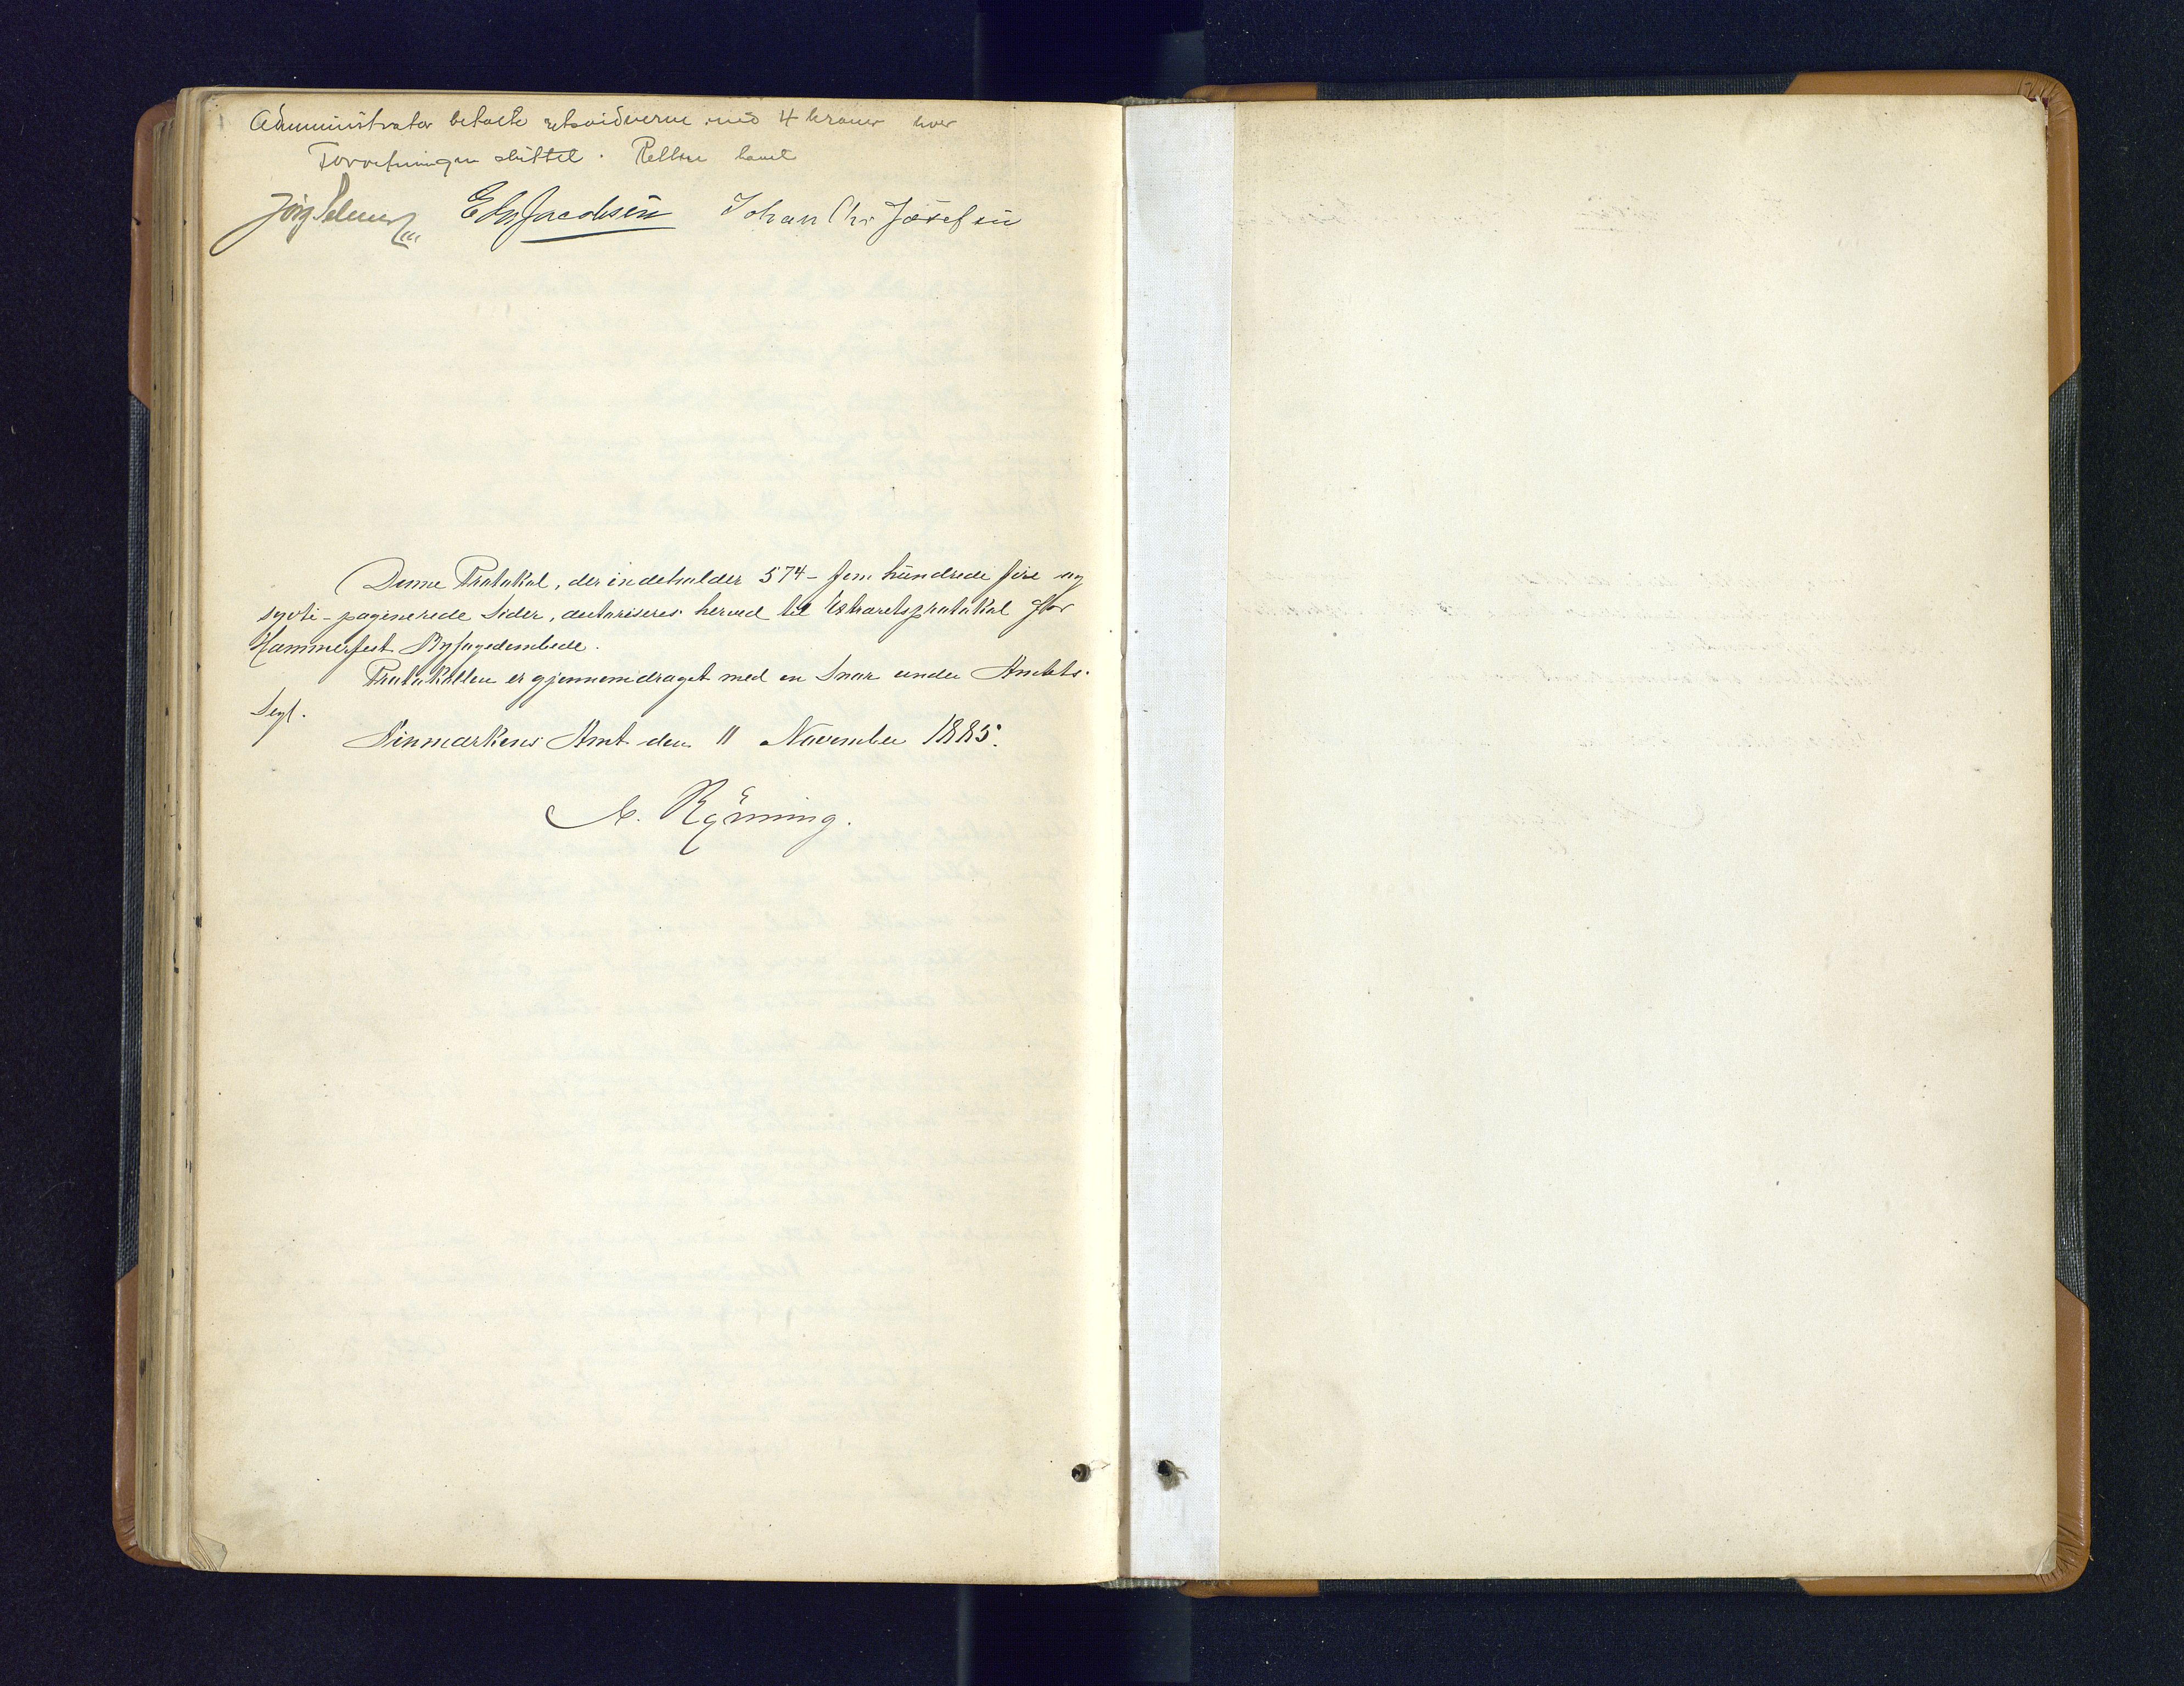 Administrator betalte retsvidnerne med 4 kroner hver
Forretningen sluttet. Retten hævet
E Chr Jacobsen Johan Chr Josefsen
Denne Protokol, der indeholder 574 - fem hundrede fire og
syvti - paginerede Sider, autoriseres herved til Extraretsprotokol for
Hammerfest Byfogedembede.
Protokollen er gjennemdraget med en Snor under Amtets
Segl.
Finmarkens Amt den 11 November 1885.